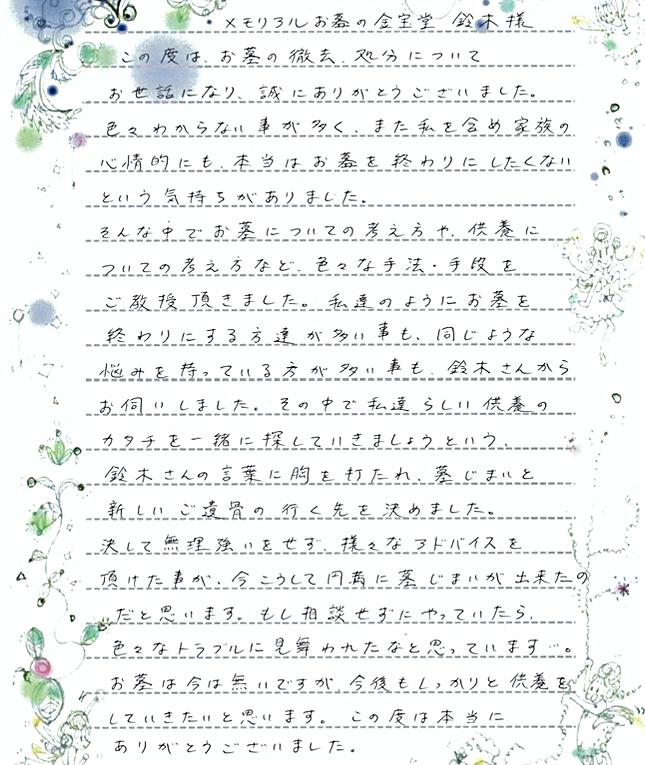 メモリアルお墓の金宝堂 鈴木様
この度は、お墓の徹去、処分について
お世話になり、誠にありがとうございました。
色々わからない事が多く、また私を含め家族の
心情的にも、本当はお墓を終わりにしたくない
という気持ちがありました。
そんな中でお墓についての考え方や、供養に
ついての考え方など、色々な手法・手段を
ご教授頂きました。私達のようにお墓を
終わりにする方達が多い事も、同じような
悩みを持っている方が多い事も、鈴木さんから
お伺いしました。その中で私達らしい供養の
カタチを一緒に探していきましょうという、
鈴木さんの言葉に胸を打たれ、墓じまいと
新しいご遺骨の行く先を決めました。
決して無理強いをせず、様々なアドバイスを
頂けた事が、今こうして円満に墓じまいが出来たの
だと思います。もし相談せずにやっていたら、
色々なトラブルに見舞われたなと思っています…。
お墓は今は無いですが、今後もしっかりと供養を
していきたいと思います。この度は本当に
ありがとうございました。